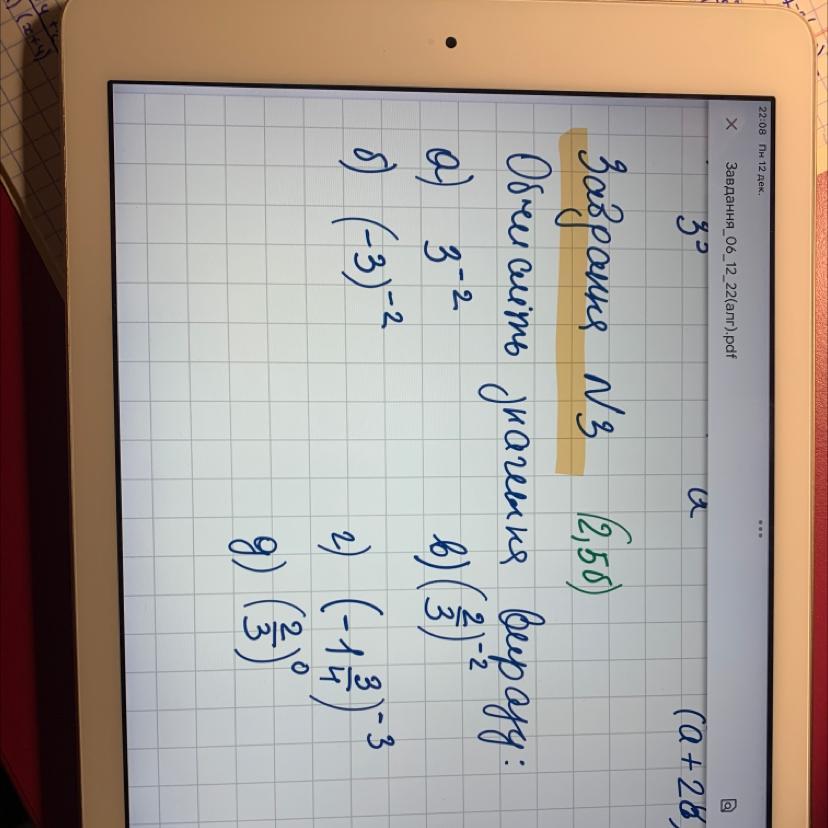 22:08 Пн 12 дек.
Завдання_06_12_22(алг).pdf
3⁵
a
(a+2b)
Завдання N3 (2,5б)
Обчисліть значення виразу:
а) 3⁻²
б) (-3)⁻²
в) (2/3)⁻²
г) (-1 3/4)⁻³
д) (2/3)⁰